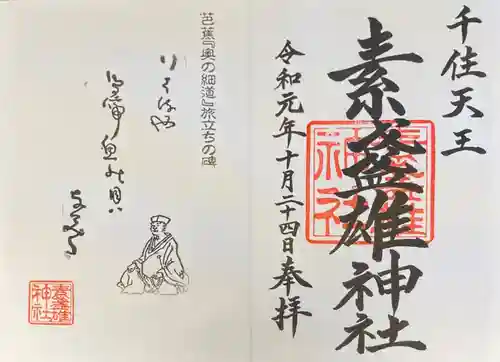 千住天王
素盞雄神社
令和元年十月二十四日奉拝
芭蕉『奥の細道』旅立ちの碑
行く春や
鳥啼魚の目ハ
なみた
素盞雄
神社